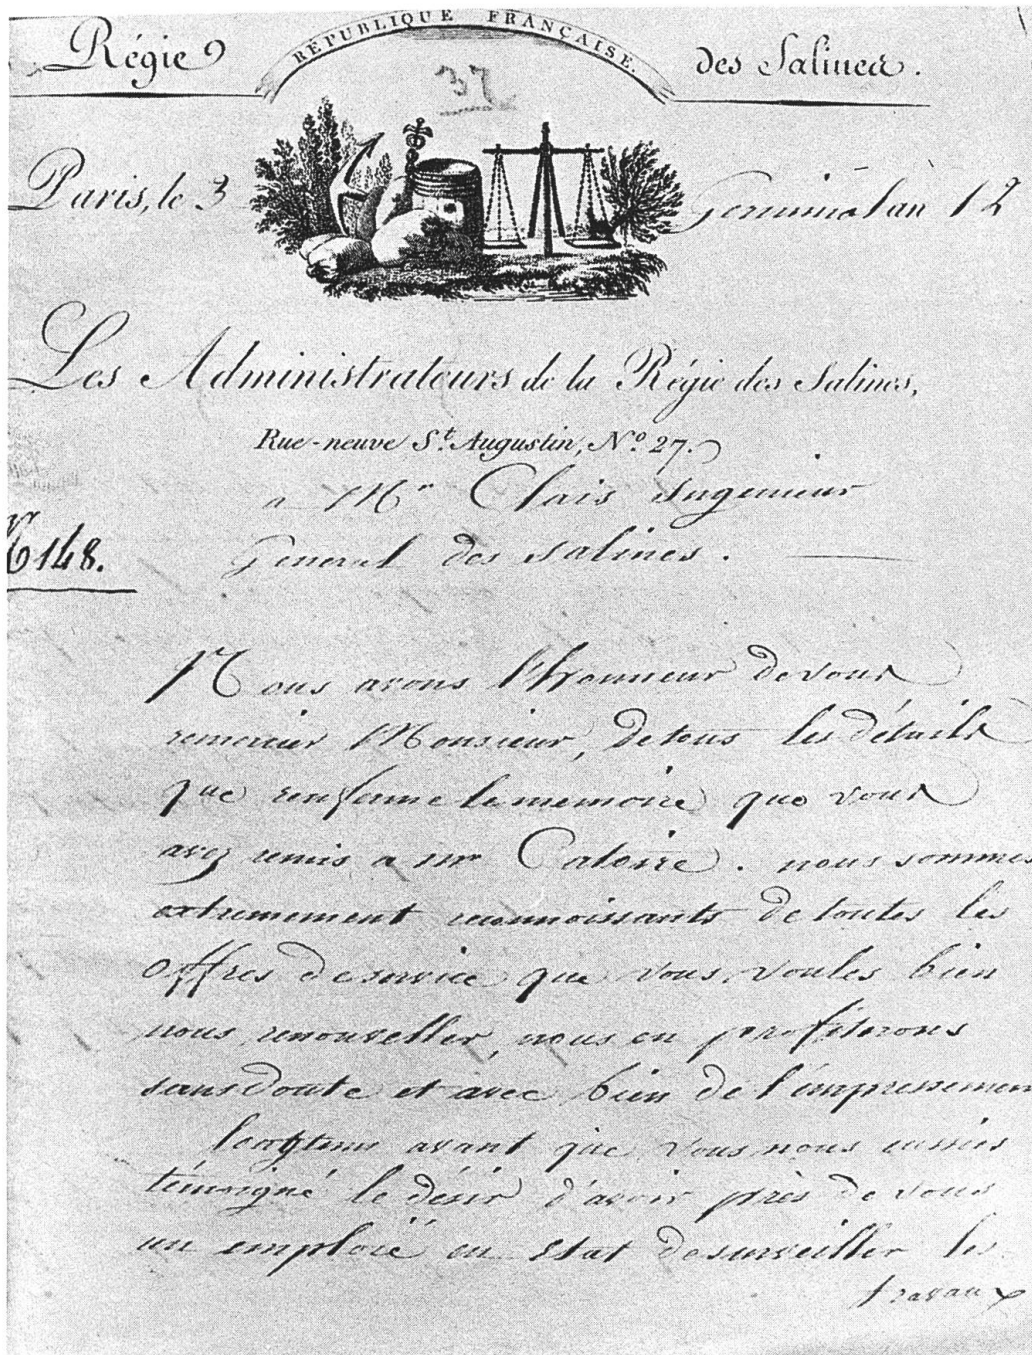 RÉPUBLIQUE FRANÇAISE.
Régie des Salines.
37
Paris, le 3 Germinal an 12
Les Administrateurs de la Régie des Salines,
Rue-neuve St. Augustin, No. 27.
a Mr Clais Ingenieur
General des salines.
148.
Nous avons l'honneur de vous
remercier Monsieur, de tous les détails
que renferme le memoire que vous
avez remis a mr Catoire. nous sommes
extremement reconnoissants de toutes les
offres de service que vous voulés bien
nous renouveller, nous en profiterons
sans doute et avec bien de l'émpressemen
longtems avant que vous nous eussiés
témoigné le désir d'avoir près de vous
un emploié en état de surveiller les
travaux